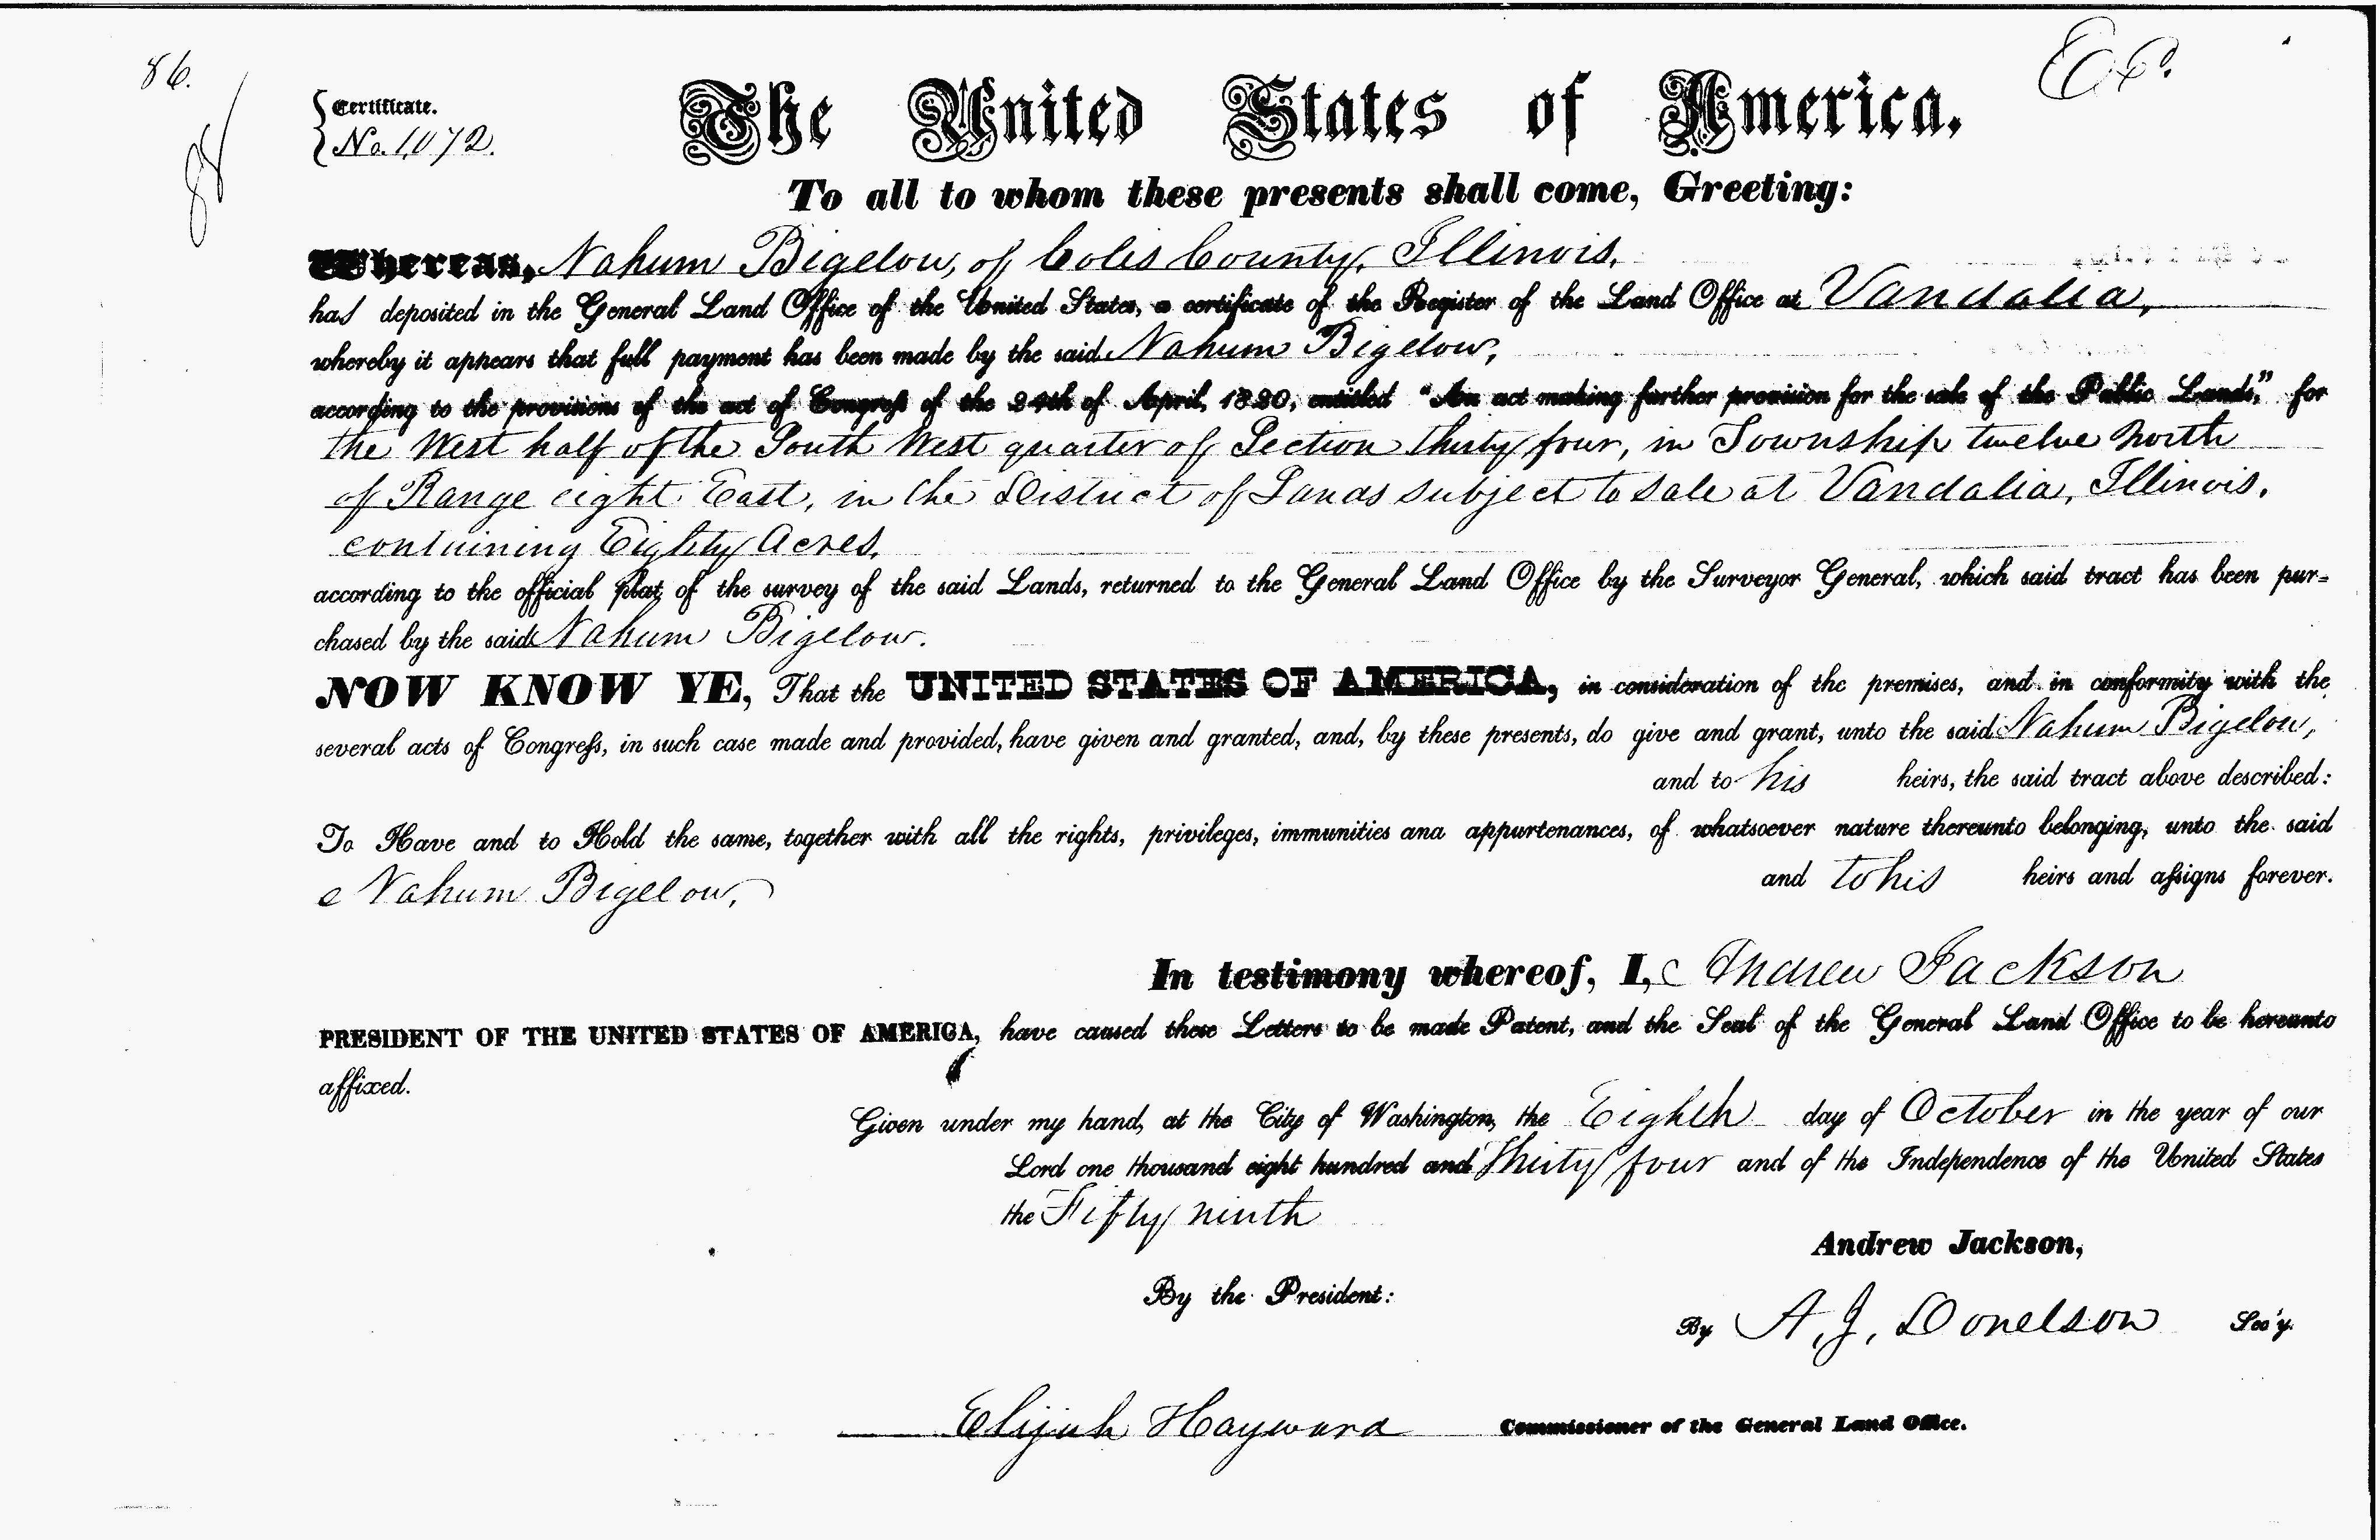 86.
88
Certificate.
No. 1,072.
The United States of America,
To all to whom these presents shall come, Greeting:
Whereas, Nahum Bigelow, of Coles County, Illinois,
has deposited in the General Land Office of the United States, a certificate of the Register of the Land Office at Vandalia,
whereby it appears that full payment has been made by the said Nahum Bigelow,
according to the provisions of the act of Congress of the 24th of April, 1820, entitled "An act making further provision for the sale of the Public Lands," for
the West half of the South West quarter of Section thirty four, in Township twelve North
of Range eight East, in the District of Lands subject to sale at Vandalia, Illinois,
containing Eighty Acres,
according to the official plat of the survey of the said Lands, returned to the General Land Office by the Surveyor General, which said tract has been pur=
chased by the said Nahum Bigelow.
NOW KNOW YE, That the UNITED STATES OF AMERICA, in consideration of the premises, and in conformity with the
several acts of Congress, in such case made and provided, have given and granted, and, by these presents, do give and grant, unto the said Nahum Bigelow,
and to his heirs, the said tract above described:
To Have and to Hold the same, together with all the rights, privileges, immunities and appurtenances, of whatsoever nature thereunto belonging, unto the said
Nahum Bigelow, and to his heirs and assigns forever.
In testimony whereof, I, Andrew Jackson
PRESIDENT OF THE UNITED STATES OF AMERICA, have caused these Letters to be made Patent, and the Seal of the General Land Office to be hereunto
affixed.
Given under my hand, at the City of Washington, the Eighth day of October in the year of our
Lord one thousand eight hundred and Thirty four and of the Independence of the United States
the Fifty ninth
Andrew Jackson,
By the President:
By A. J. Donelson Sec'y.
Elijah Hayward Commissioner of the General Land Office.